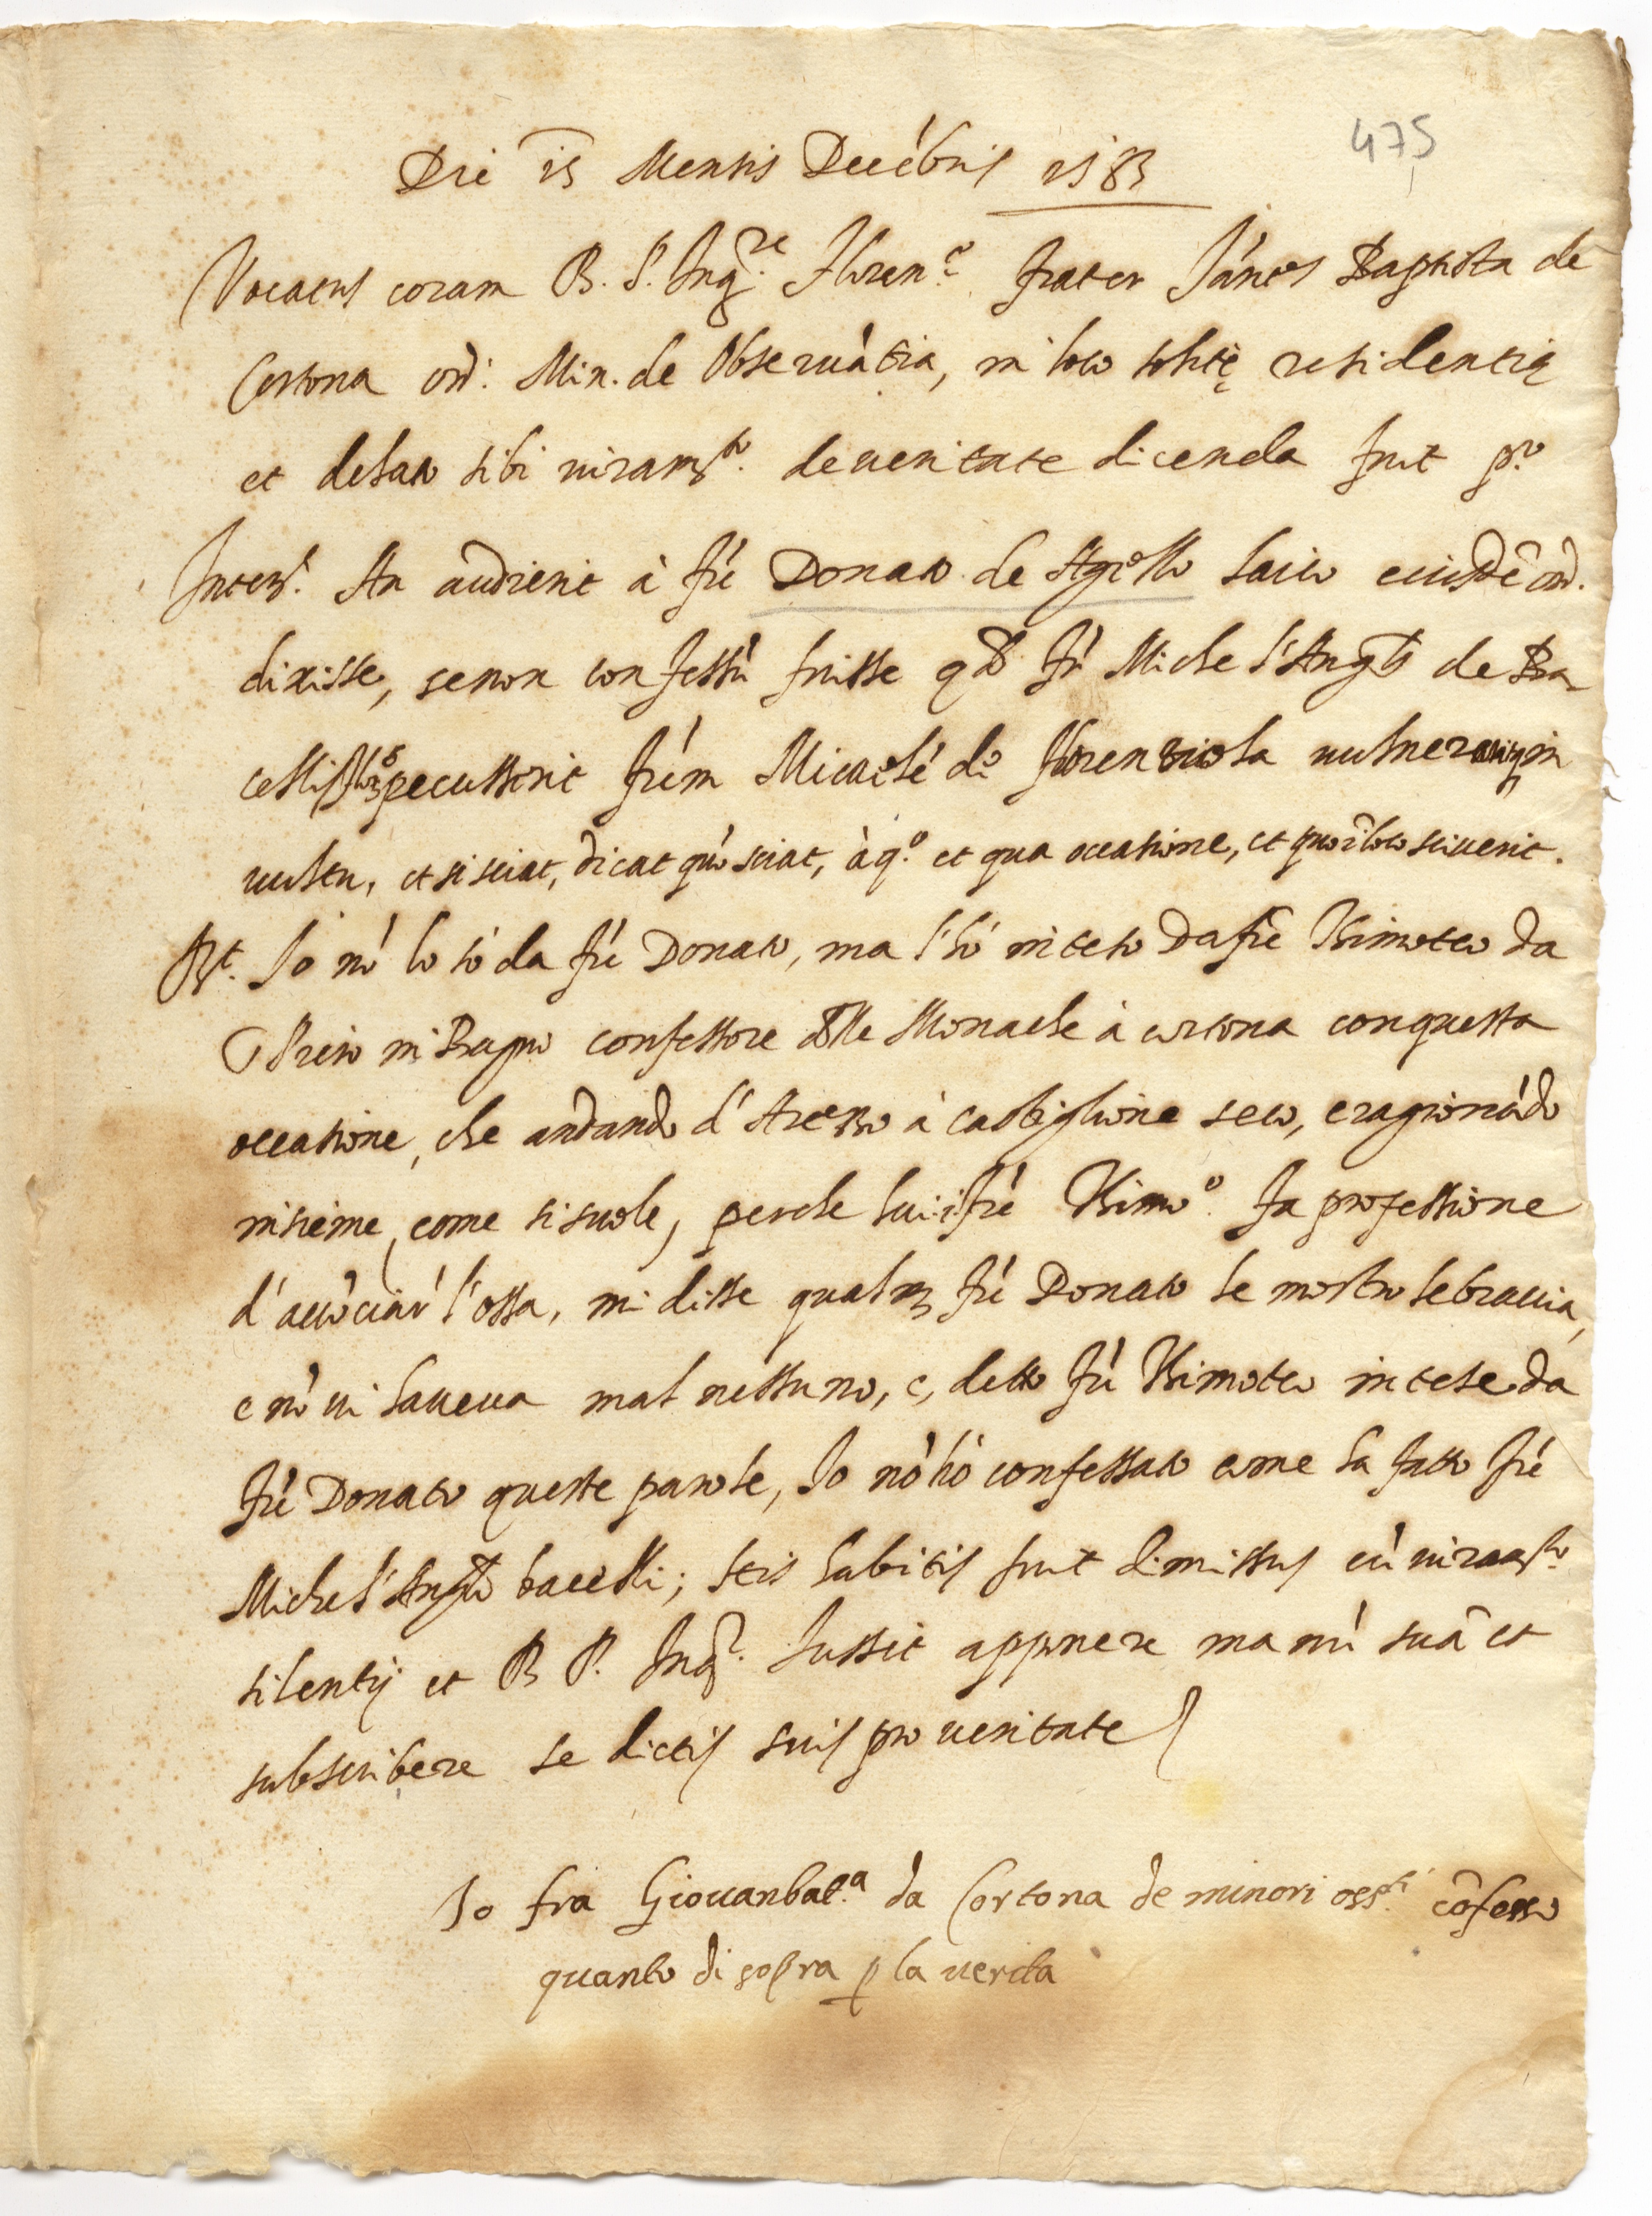 475
Die 15 Mensis Decēbris 1583
Vocatus coram R. P. Inq.re Floren.o frater Ioānes Baptista de
Cortona ord: Min. de Observātia, in loco solitę residentię
et delato sibi iuram.to de veritate dicenda fuit p.o
Inter. An audierit à frē Donato de laico eiusdē ord.
dixisse, se non confessū fuisse qd fr Michel'Ang.s de Ba
cellis percusserit frēm Micaelē de Florentiola in
vultu, et si sciat, dicat quō sciat, à q.o et qua occasione, et quo in loco sciverit.
R.t Io nō lo sò da frē Donato, ma l'hò inteso da frē Thimoteo da
in Bagno confessore delle Monache à cortona con questa
occasione, che andando d'Arezzo à castiglione seco, e ragionādo
insieme, come si suole, perche lui i. frē Thimo.o fa professione
d'acōciar l'ossa, mi disse qualm frē Donato le mostrò le braccia,
e nō vi haveva mal nessuno, e, detto frē Thimoteo intese da
frē Donato queste parole, Io nō hò confessato come ha fatto frē
Michel'Ang.lo bacelli; Q.bus habitis fuit dimissus cū iuram.to
silentij et R P. Inq.r Iussit apponere manū suā et
subscribere se dictis suis pro veritate
Io fra Giovanbat.a da Cortona de minori oss.ti cōfesso
quanto di sopra p la verita